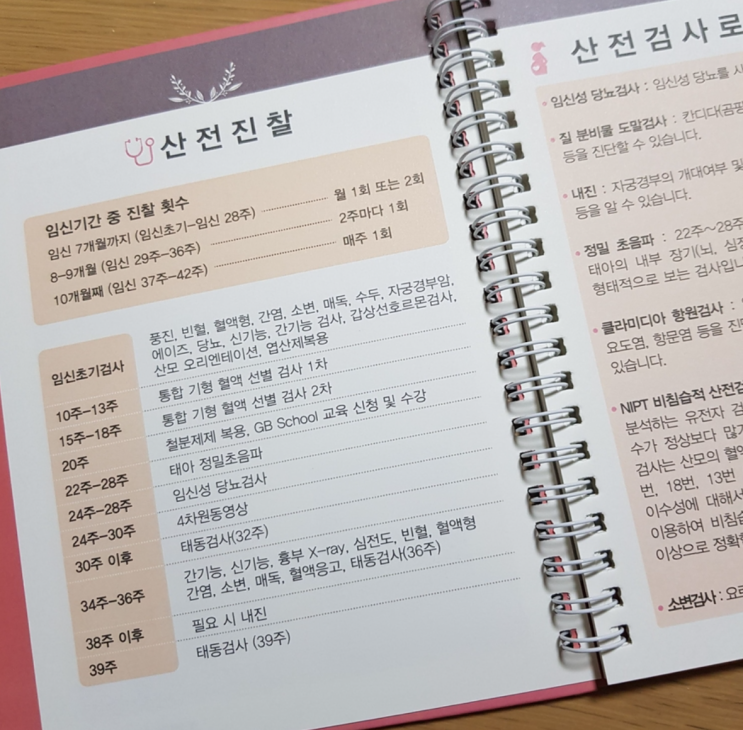 산전진찰
임신기간 중 진찰 횟수
임신 7개월까지 (임신초기-임신 28주) 월 1회 또는 2회
8-9개월 (임신 29주-36주) 2주마다 1회
10개월째 (임신 37주-42주) 매주 1회
임신초기검사
풍진, 빈혈, 혈액형, 간염, 소변, 매독, 수두, 자궁경부암,
에이즈, 당뇨, 신기능, 간기능 검사, 갑상선호르몬검사,
산모 오리엔테이션, 엽산제복용
10주-13주 통합 기형 혈액 선별 검사 1차
15주-18주 통합 기형 혈액 선별 검사 2차
20주 철분제제 복용, GB School 교육 신청 및 수강
22주-28주 태아 정밀초음파
24주-28주 임신성 당뇨검사
24주-30주 4차원동영상
30주 이후 태동검사(32주)
34주-36주
간기능, 신기능, 흉부 X-ray, 심전도, 빈혈, 혈액형
간염, 소변, 매독, 혈액응고, 태동검사(36주)
38주 이후 필요 시 내진
39주 태동검사 (39주)
산전검사로
• 임신성 당뇨검사 : 임신성 당뇨를
• 질 분비물 도말검사 : 칸디다(곰팡
등을 진단할 수 있습니다.
• 내진 : 자궁경부의 개대여부 및
등을 알 수 있습니다.
• 정밀 초음파 : 22주~28주
태아의 내부 장기(뇌, 심장
형태적으로 보는 검사입니
• 클라미디아 항원검사 :
요도염, 항문염 등을 진단
있습니다.
• NIPT 비침습적 산전검
분석하는 유전자 검
수가 정상보다 많거
검사는 산모의 혈액
번, 18번, 13번
이수성에 대해서
이용하여 비침습
이상으로 정확
• 소변검사 : 요로